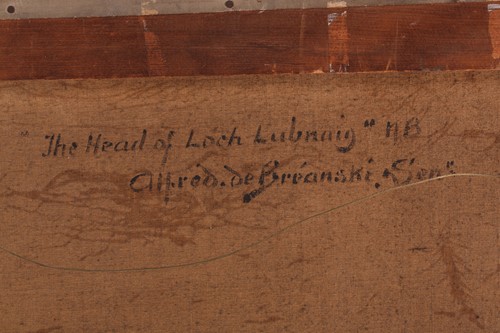 "The Head of Loch Lubnaig" NB
Alfred. de Bréanski. Sen".